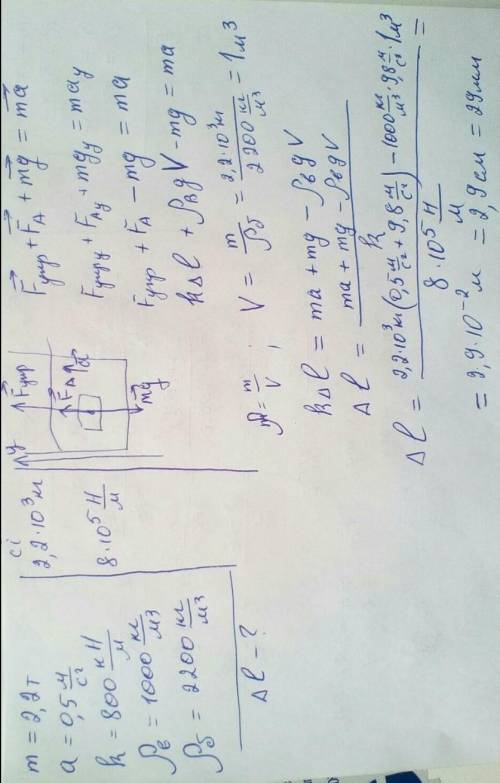 m = 2,2т
a = 0,5 м/с²
k = 800 кН/м
ρв = 1000 кг/м³
ρб = 2200 кг/м³
Δl - ?
СІ
2,2·10³ кг
8·10⁵ Н/м
y
Fупр
FA
a
mg
Fупр + FA + mg = ma
Fупр y + FA y + mg y = ma y
Fупр + FA - mg = ma
kΔl + ρв g V - mg = ma
ρ = m/V ; V = m/ρб = 2,2·10³ кг / 2200 кг/м³ = 1 м³
kΔl = ma + mg - ρв g V
Δl = ma + mg - ρв g V / k
Δl = 2,2·10³ кг (0,5 м/с² + 9,8 м/с²) - 1000 кг/м³ · 9,8 м/с² · 1 м³ / 8·10⁵ Н/м =
= 2,9·10⁻² м = 2,9 см = 29 мм